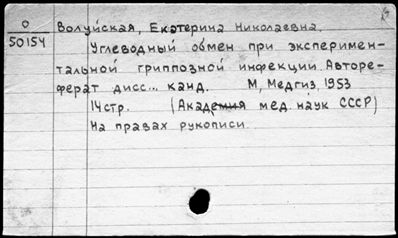 О
50154
Волуйская, Екатерина Николаевна.
Углеводный обмен при эксперимен-
тальной гриппозной инфекции. Авторе-
ферат дисс... канд. М, Медгиз, 1953
14 стр. (Академия мед. наук СССР)
На правах рукописи.